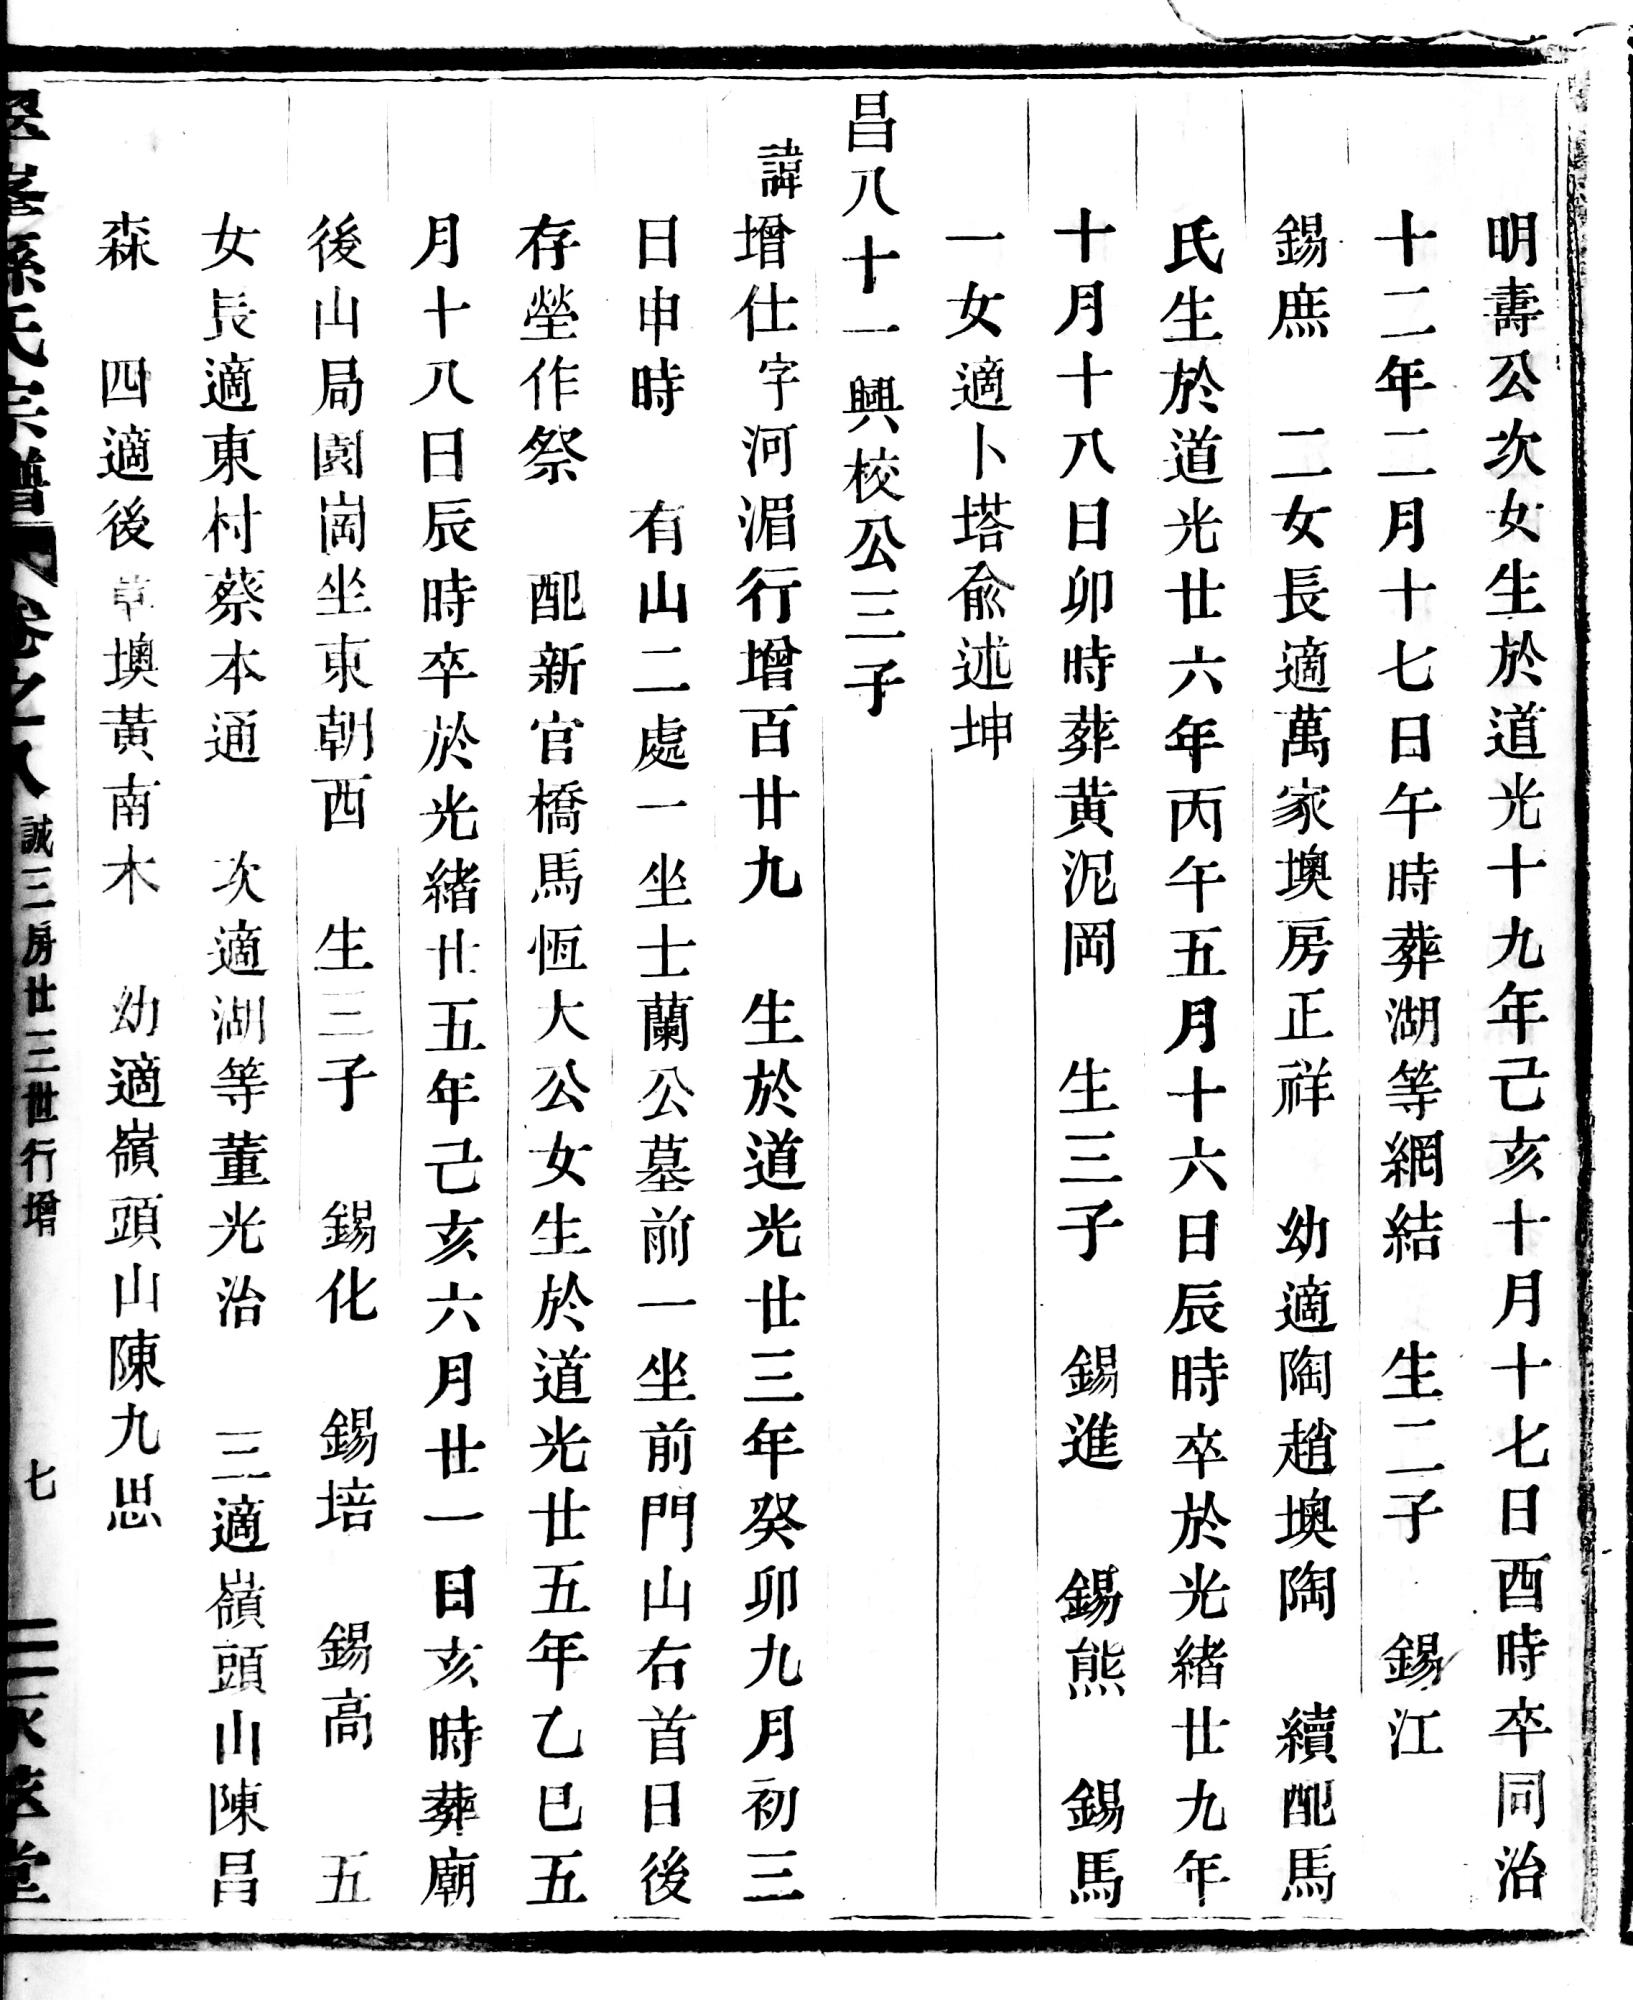 明壽公次女生於道光十九年己亥十月十七日酉時卒同治
十二年二月十七日午時葬湖等網結　生二子　錫江
錫庶　二女長適萬家墺房正祥　幼適陶趙墺陶　續配馬
氏生於道光廿六年丙午五月十六日辰時卒於光緒廿九年
十月十八日卯時葬黄泥岡　生三子　錫進　錫熊　錫馬
一女適卜塔俞述坤
昌八十一興校公三子
諱增仕字河湄行增百廿九　生於道光廿三年癸卯九月初三
日申時　有山二處一坐士蘭公墓前一坐前門山右首日後
存塋作祭　配新官橋馬恆大公女生於道光廿五年乙巳五
月十八日辰時卒於光緒廿五年己亥六月廿一日亥時葬廟
後山局園崗坐東朝西　生三子　錫化　錫培　錫高　五
女長適東村蔡本通　次適湖等董光治　三適嶺頭山陳昌
森　四適後章墺黃南木　幼適嶺頭山陳九思
孫氏宗譜　卷之八　誠三房廿三世行增　七　堂